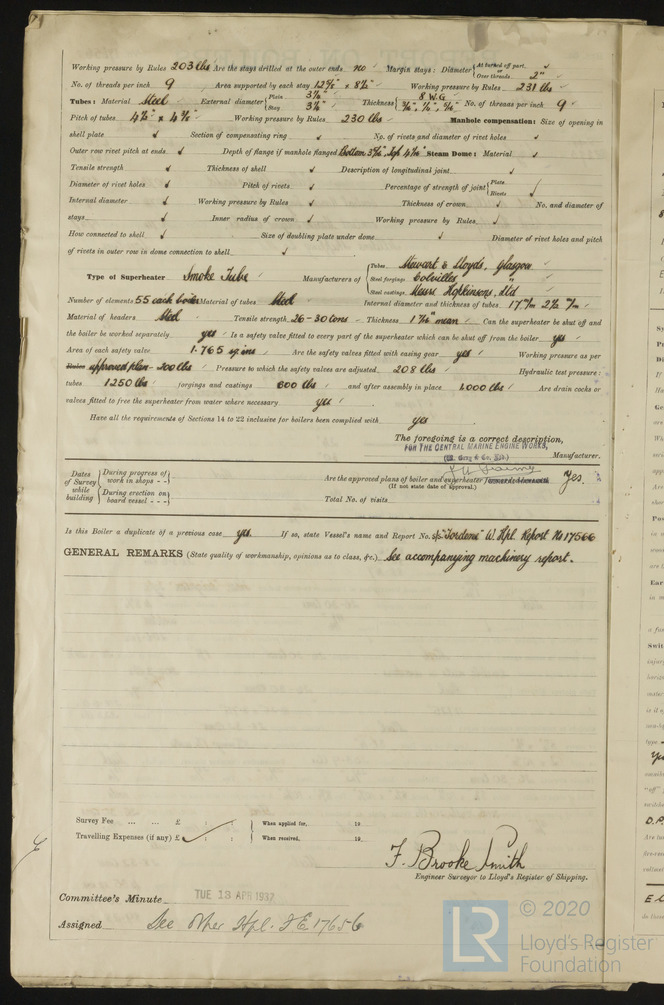 Working pressure by Rules 203 lbs Are the stays drilled at the outer ends no Margin stays: Diameter { At turned off part, or Over threads 2"
No. of threads per inch 9 Area supported by each stay × 8½" Working pressure by Rules 231 lbs
Tubes: Material Steel External diameter { Plain Stay 3¼" Thickness { 8 W.G No. of threads per inch 9
Pitch of tubes Working pressure by Rules 230 lbs Manhole compensation: Size of opening in
shell plate Section of compensating ring No. of rivets and diameter of rivet holes
Outer row rivet pitch at ends Depth of flange if manhole flanged Bottom Steam Dome: Material
Tensile strength Thickness of shell Description of longitudinal joint
Diameter of rivet holes Pitch of rivets Percentage of strength of joint { Plate Rivets
Internal diameter Working pressure by Rules Thickness of crown No. and diameter of
stays Inner radius of crown Working pressure by Rules
How connected to shell Size of doubling plate under dome Diameter of rivet holes and pitch
of rivets in outer row in dome connection to shell
Type of Superheater Smoke Tube Manufacturers of { Tubes Stewart & Lloyds, Glasgow
Steel forgings Colvilles "
Steel castings Messrs Hopkinsons, Ltd
Number of elements 55 each boiler Material of tubes Steel Internal diameter and thickness of tubes 17 m/m 2½ m/m
Material of headers Steel Tensile strength 26-30 tons Thickness mean Can the superheater be shut off and
the boiler be worked separately yes Is a safety valve fitted to every part of the superheater which can be shut off from the boiler yes
Area of each safety valve 1.765 sq.ins Are the safety valves fitted with easing gear yes Working pressure as per
Rules approved plan - 200 lbs Pressure to which the safety valves are adjusted 208 lbs Hydraulic test pressure:
tubes 1250 lbs forgings and castings 600 lbs and after assembly in place 1,000 lbs Are drain cocks or
valves fitted to free the superheater from water where necessary yes
Have all the requirements of Sections 14 to 22 inclusive for boilers been complied with yes
The foregoing is a correct description,
FOR THE CENTRAL MARINE ENGINE WORKS,
(W. Gray & Co. Ltd.) Manufacturer.
Dates of Survey while building { During progress of work in shops - - } Are the approved plans of boiler and superheater forwarded herewith Yes.
(If not state date of approval.)
During erection on board vessel - - - } Total No. of visits
Is this Boiler a duplicate of a previous case yes. If so, state Vessel's name and Report No. W. Hpl. Report No 17566
GENERAL REMARKS (State quality of workmanship, opinions as to class, &c.) See accompanying machinery report.
Survey Fee ... ... £ : : When applied for, 19
Travelling Expenses (if any) £ : : When received, 19
F. Brooke Smith
Engineer Surveyor to Lloyd's Register of Shipping.
Committee's Minute TUE 13 APR 1937
Assigned See other Hpl. J.E. 17656
LR © 2020
Lloyd's Register
Foundation